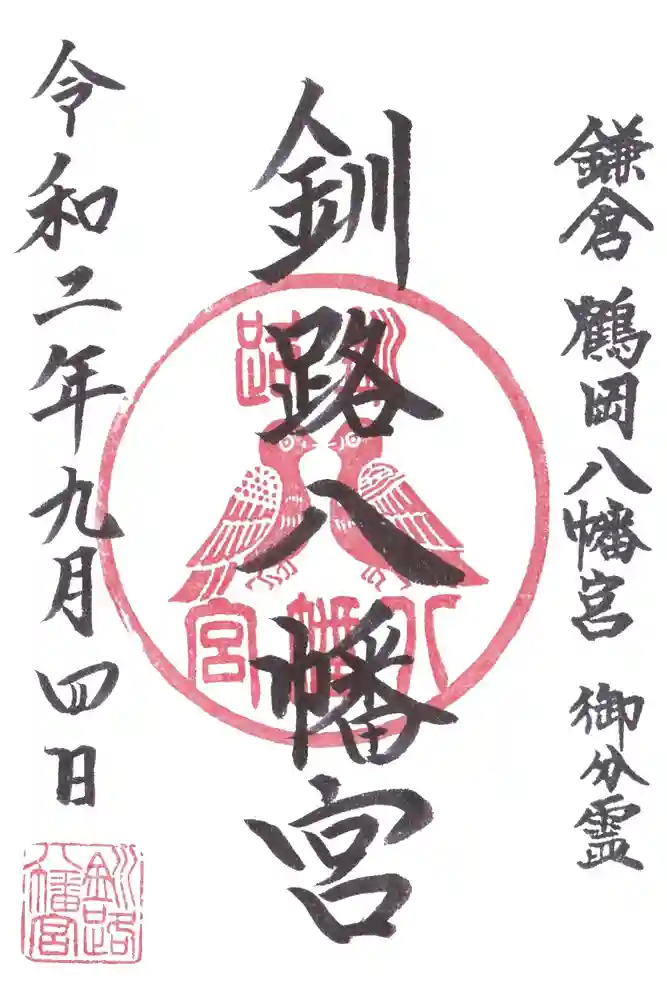 鎌倉 鶴岡八幡宮 御分霊
釧路八幡宮
釧路
八幡宮
令和二年九月四日
釧路
八幡宮